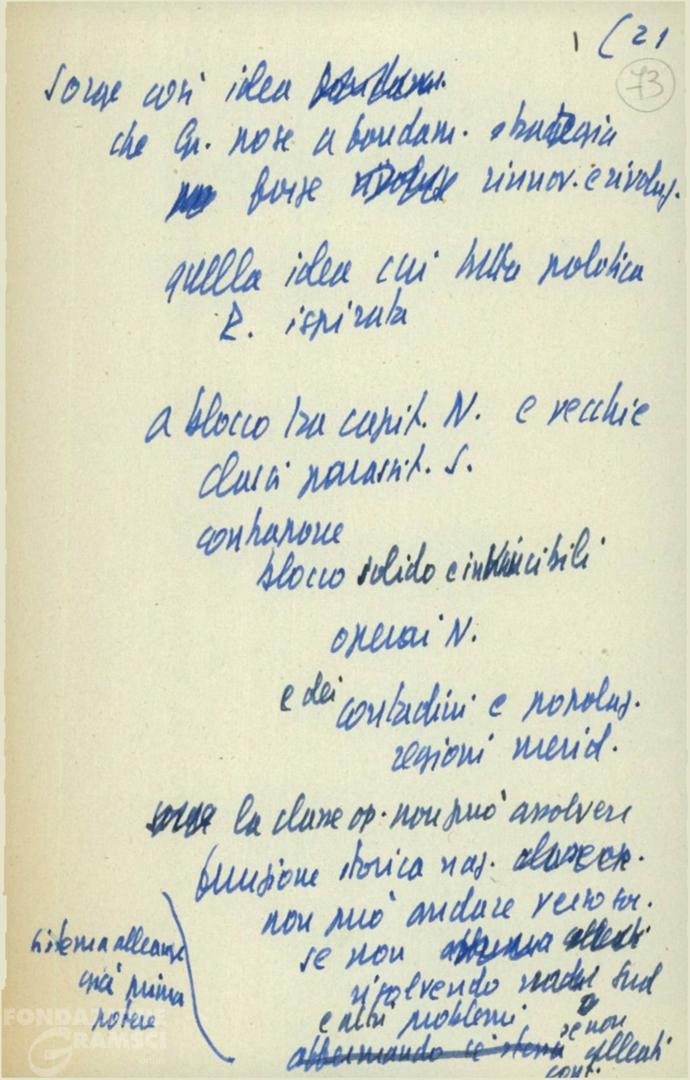 ( 21
73
Sorge così idea
che Gr. pose a fondam. strategia
forze rinnov. e rivoluz.
quella idea cui tutta politica
R. ispirata
a blocco tra capit. N. e vecchie
classi parassit. S.
contrapporre
blocco solido e invincibili
operai N.
e dei contadini e popolaz.
regioni merid.
la classe op. non può assolvere
funzione storica naz.
non può andare verso so.
se non
risolvendo Sud
e altri problemi se non
affermando alleati
cont.
sistema alleanze
già prima
potere
FONDAZIONE
GRAMSCI